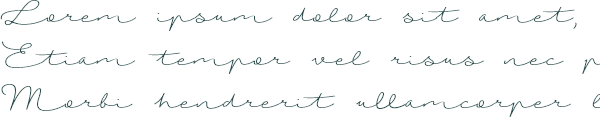 Lorem ipsum dolor sit amet,
Etiam tempor vel risus nec p
Morbi hendrerit ullamcorper l